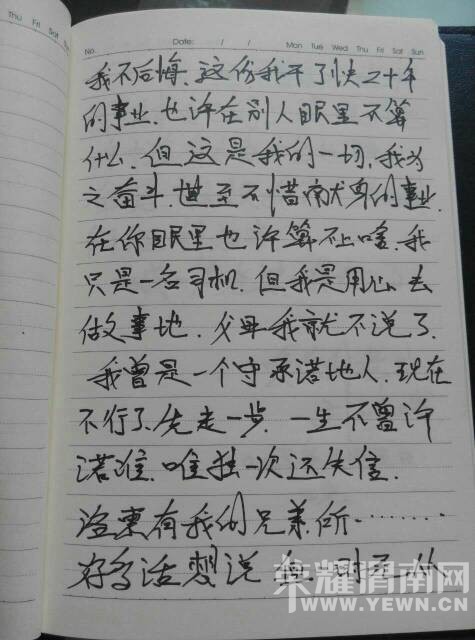 Thu Fri Sat Sun
No.
Date: / /
Mon Tue Wed Thu Fri Sat Sun
我不后悔.这份我干了快二十年
的事业.也许在别人眼里不算
什么.但这是我的一切.我为
之奋斗.甚至不惜献身的事业.
在你眼里也许算不上啥.我
只是一名司机.但我是用心去
做事地.父母我就不说了.
我曾是一个守承诺地人.现在
不行了.先走一步.一生不曾许
诺谁.唯独一次还失信.
有我的兄弟.所………
好多话想说 但 时
荣耀渭南网
WWW.YEWN.CN